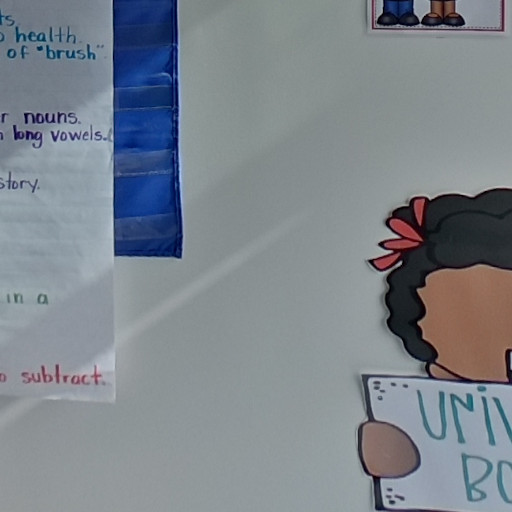 health.
of "brush"
nouns.
long vowels.
story.
in a
subtract.
UNIV
BO